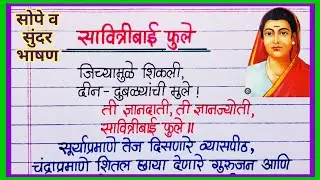 सोपे व
सुंदर
भाषण
सावित्रीबाई फुले
जिच्यामुळे शिकली,
दीन-दुबळ्यांची मुले !
ती ज्ञानदाती, ती ज्ञानज्योती,
सावित्रीबाई फुले ॥
सूर्याप्रमाणे तेज दिसणारे व्यासपीठ,
चंद्राप्रमाणे शितल छाया देणारे गुरुजन आणि